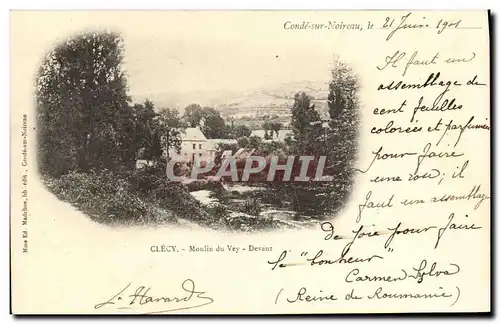 Condé-sur-Noireau, le 21 Juin 1901
Il faut un
assemblage de
cent feuilles
colorées et parfumées
pour faire
une rose; il
faut un assemblage
de joie pour faire
le "bonheur"
Carmen Sylva
(Reine de Roumanie)
CLÉCY. - Moulin du Vey - Devant
L. Havard
Mme Ed. Madeline, lib. édit., Condé-sur-Noireau
CPA PHIL